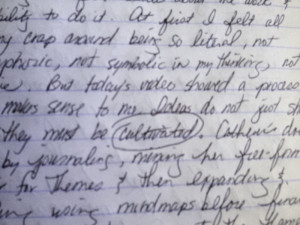 bility to do it. At first I felt all
my crap around being so literal, not
phoric, not symbolic in my thinking, not
But today's video showed a process
makes sense to me. Ideas do not just
they must be cultivated.
by journaling, merging her free-form
for themes & then expanding &
using mindmaps before